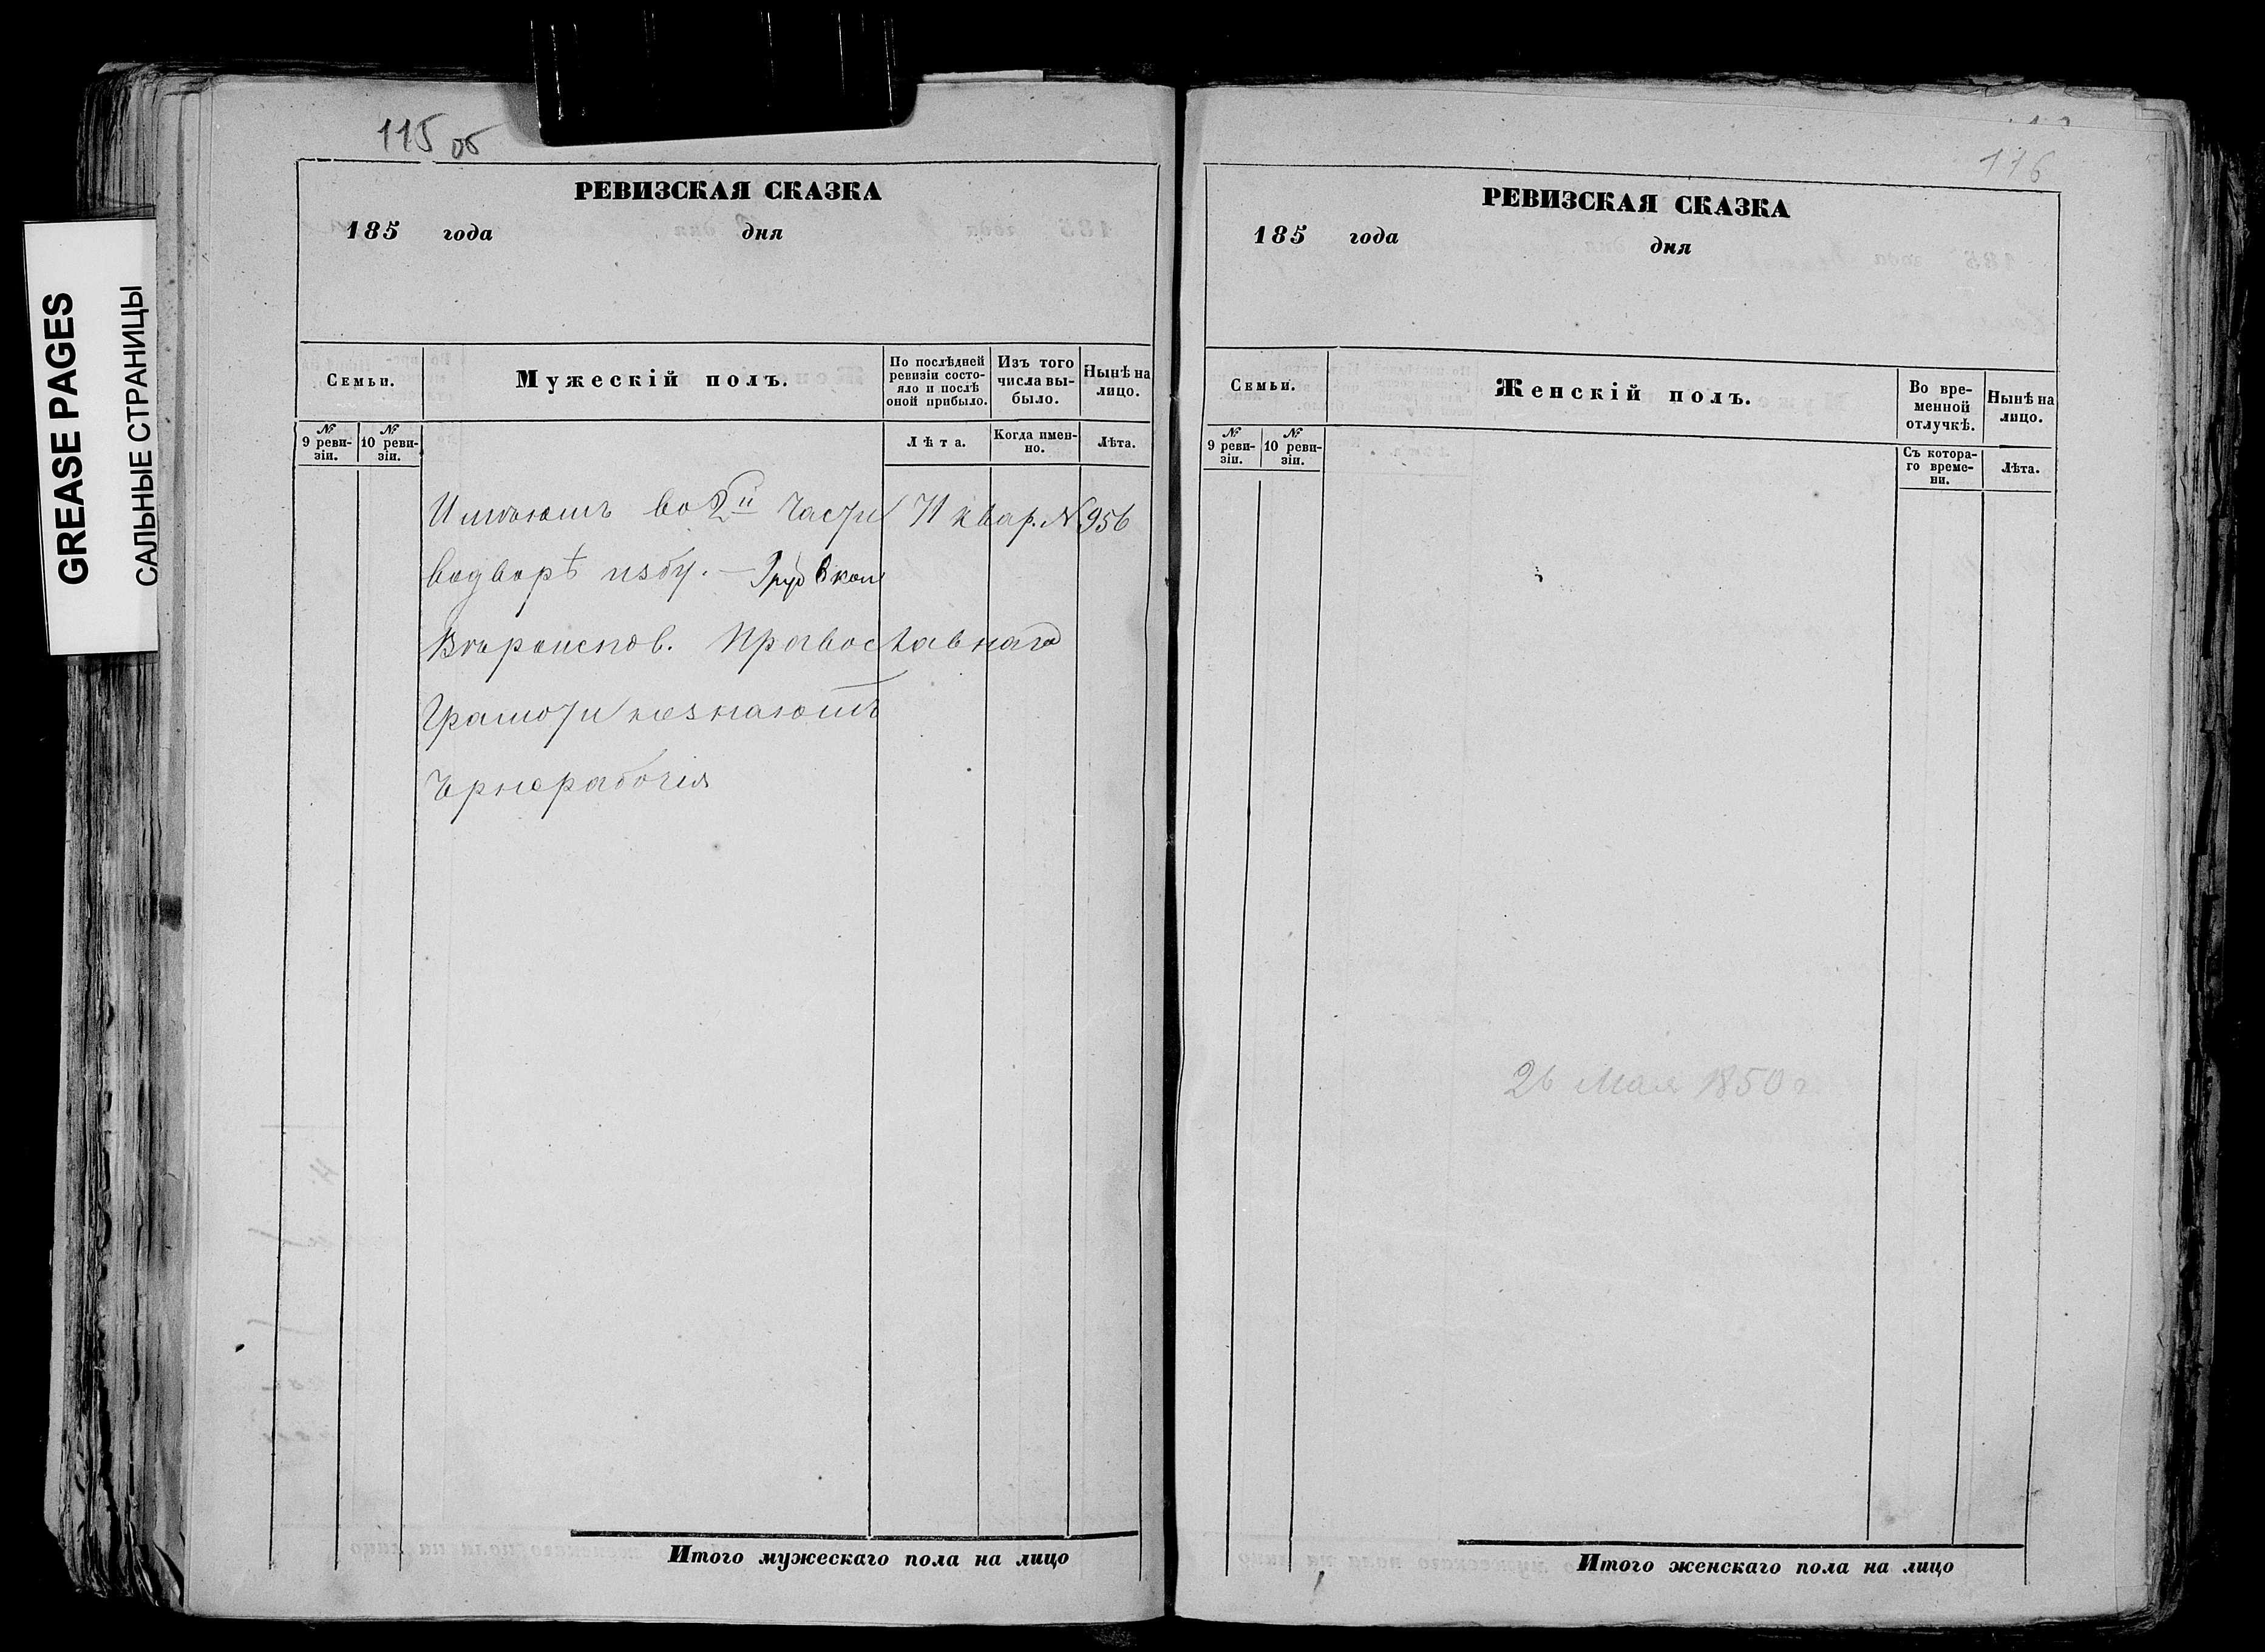 GREASE PAGES
САЛЬНЫЕ СТРАНИЦЫ
115 об
РЕВИЗСКАЯ СКАЗКА
185 года дня
Семьи.
Мужескій полъ.
По послѣдней ревизіи состо-
яло и послѣ
оной прибыло.
Изъ того
числа вы-
было.
Нынѣ на
лицо.
№ 9 реви-
зіи.
№ 10 реви-
зіи.
Лѣта.
Когда имен-
но.
Лѣта.
Имѣютъ во 2й части 71 квар. № 956
водворѣ избу. —
Вѣроиспов. Православнаго
Грамоти незнаютъ
Чрнорабочія
Итого мужескаго пола на лицо
116
РЕВИЗСКАЯ СКАЗКА
185 года дня
Семьи.
Женскій полъ.
Во вре-
менной
отлучкѣ.
Нынѣ на
лицо.
№ 9 реви-
зіи.
№ 10 реви-
зіи.
Съ котора-
го време-
ни.
Лѣта.
26 Мая 1850 г
Итого женскаго пола на лицо